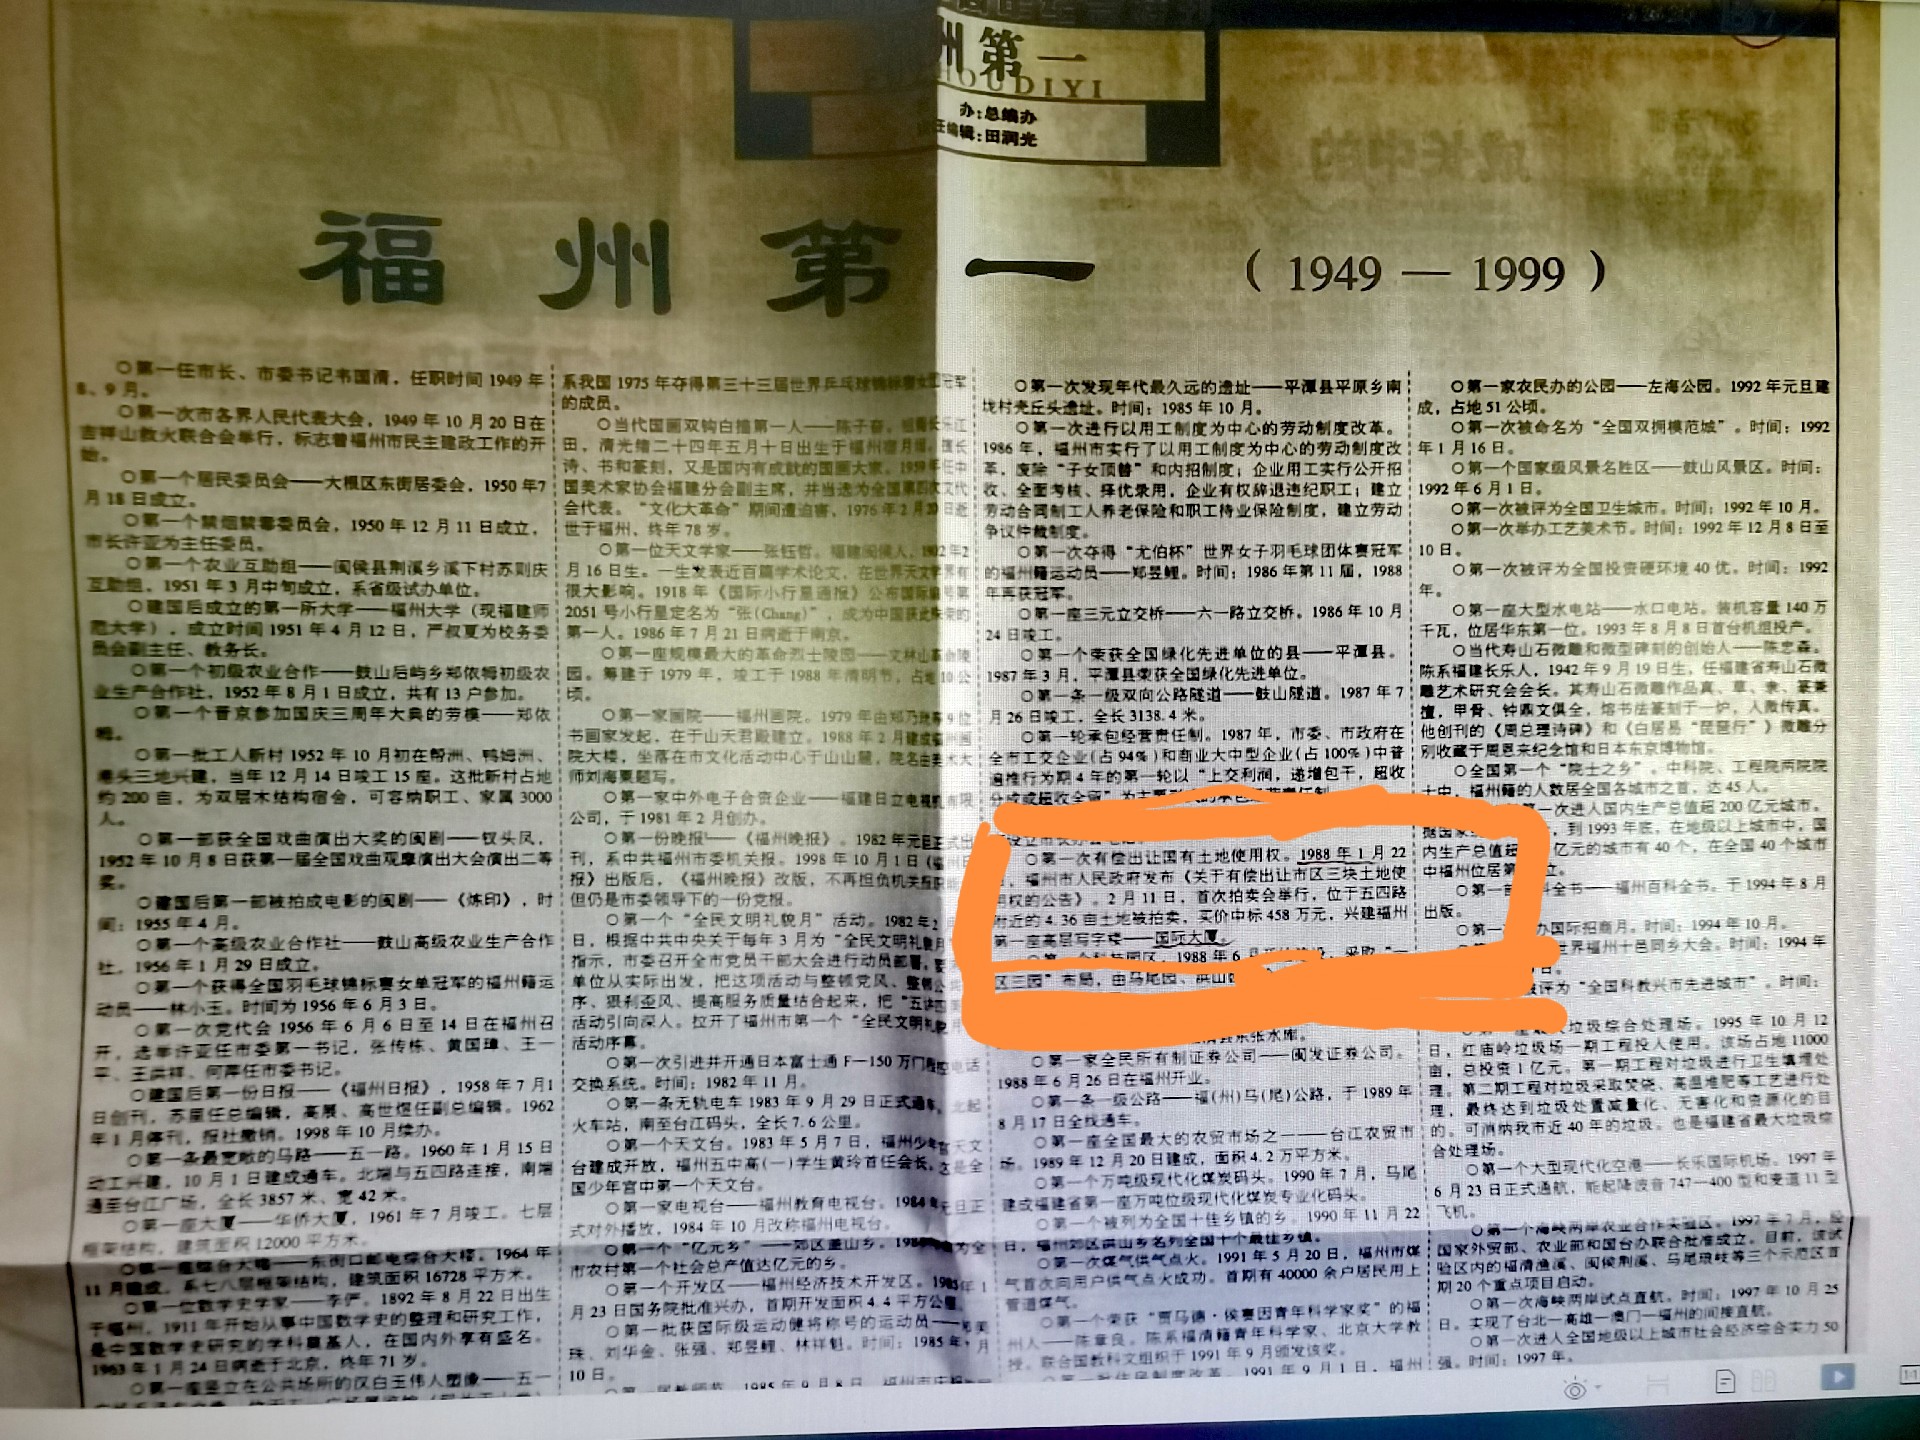 州第一
FUZHOUDIYI
办:总编办
责任编辑:田润光
福州第一(1949—1999)
○第一任市长、市委书记韦国清,任职时间1949年
8、9月。
○第一次市各界人民代表大会,1949年10月20日在
吉祥山救火联合会举行,标志着福州市民主建政工作的开
始。
○第一个居民委员会——大根区东街居委会,1950年7
月18日成立。
○第一个禁烟禁毒委员会,1950年12月11日成立,
市长许亚为主任委员。
○第一个农业互助组——闽侯县荆溪乡溪下村苏则庆
互助组,1951年3月中旬成立,系省级试办单位。
○建国后成立的第一所大学——福州大学(现福建师
范大学),成立时间1951年4月12日,严叔夏为校务委
员会副主任、教务长。
○第一个初级农业合作——鼓山后屿乡郑依姆初级农
业生产合作社,1952年8月1日成立,共有13户参加。
○第一个晋京参加国庆三周年大典的劳模——郑依
姆。
○第一批工人新村1952年10月初在帮洲、鸭姆洲、
三地兴建,当年12月14日竣工15座。这批新村占地
约200亩,为双层木结构宿舍,可容纳职工、家属3000
人。
○第一部获全国戏曲演出大奖的闽剧——钗头凤,
1952年10月8日获第一届全国戏曲观摩演出大会演出二等
奖。
○建国后第一部被拍成电影的闽剧——《炼印》,时
间:1955年4月。
○第一个高级农业合作社——鼓山高级农业生产合作
社,1956年1月29日成立。
○第一个获得全国羽毛球锦标赛女单冠军的福州籍运
动员——林小玉。时间为1956年6月3日。
○第一次党代会1956年6月6日至14日在福州召
开,选举许亚任市委第一书记,张传栋、黄国璋、王一
平、王洪祥、何萍任市委书记。
○建国后第一份日报——《福州日报》,1958年7月1
日创刊,苏里任总编辑,高展、高世煜任副总编辑。1962
年1月停刊,报社撤销。1998年10月续办。
○第一条最宽敞的马路——五一路。1960年1月15日
动工兴建,10月1日建成通车。北端与五四路连接,南端
通至台江广场,全长3857米、宽42米。
○第一座大厦——华侨大厦,1961年7月竣工。七层
框架结构,建筑面积12000平方米。
○第一座综合大楼——东街口邮电综合大楼,1964年
11月建成。系七八层框架结构,建筑面积16728平方米。
○第一位数学史学家——李俨。1892年8月22日出生
于福州,1911年开始从事中国数学史的整理和研究工作,
是中国数学史研究的学科奠基人,在国内外享有盛名。
1963年1月24日病逝于北京,终年71岁。
○第一座竖立在公共场所的汉白玉伟人塑像——五一
系我国1975年夺得第三十三届世界乒乓球锦标赛女团冠军
的成员。
○当代国画双钩白描第一人——陈子奋。祖籍长乐江
田,清光绪二十四年五月十日出生于福州宦月厝,擅长
诗、书和篆刻,又是国内有成就的国画大家。1959年任中
国美术家协会福建分会副主席,并当选为全国第四次文代
会代表。“文化大革命”期间遭迫害,1976年2月20日逝
世于福州,终年78岁。
○第一位天文学家——张钰哲。福建闽侯人,1902年2
月16日生。一生发表近百篇学术论文,在世界天文学界有
很大影响。1918年《国际小行星通报》公布国际编号第
2051号小行星定名为“张(Chang)”,成为中国获此殊荣的
第一人。1986年7月21日病逝于南京。
○第一座规模最大的革命烈士陵园——文林山革命陵
园。筹建于1979年,竣工于1988年清明节,占地10公
顷。
○第一家画院——福州画院。1979年由郑乃珖等9位
书画家发起,在于山天君殿建立。1988年2月建成福州画
院大楼,坐落在市文化活动中心于山山麓,院名由美术大
师刘海粟题写。
○第一家中外电子合资企业——福建日立电视机有限
公司,于1981年2月创办。
○第一份晚报——《福州晚报》。1982年元旦正式出
刊,系中共福州市委机关报。1998年10月1日《福州日
报》出版后,《福州晚报》改版,不再担负机关报职能,
但仍是市委领导下的一份党报。
○第一个“全民文明礼貌月”活动。1982年2
日,根据中共中央关于每年3月为“全民文明礼貌月”
指示,市委召开全市党员干部大会进行动员部署,要
单位从实际出发,把这项活动与整顿党风、整顿公共秩
序、狠刹歪风、提高服务质量结合起来,把“五讲四美”
活动引向深入。拉开了福州市第一个“全民文明礼貌月”
活动序幕。
○第一次引进并开通日本富士通F—150万门程控电话
交换系统。时间:1982年11月。
○第一条无轨电车1983年9月29日正式通车,北起
火车站,南至台江码头,全长7.6公里。
○第一个天文台。1983年5月7日,福州少年宫天文
台建成开放,福州五中高(一)学生黄玲首任会长,这是全
国少年宫中第一个天文台。
○第一家电视台——福州教育电视台。1984年元旦正
式对外播放,1984年10月改称福州电视台。
○第一个“亿元乡”——郊区盖山乡。1984年成为全
市农村第一个社会总产值达亿元的乡。
○第一个开发区——福州经济技术开发区。1985年1
月23日国务院批准兴办,首期开发面积4.4平方公里。
○第一批获国际级运动健将称号的运动员——郭美
珠、刘华金、张强、郑昱鲤、林祥魁。时间:1985年9月
10日。
○第一次发现年代最久远的遗址——平潭县平原乡南
垅村壳丘头遗址。时间:1985年10月。
○第一次进行以用工制度为中心的劳动制度改革。
1986年,福州市实行了以用工制度为中心的劳动制度改
革,废除“子女顶替”和内招制度;企业用工实行公开招
收、全面考核、择优录用,企业有权辞退违纪职工;建立
劳动合同制工人养老保险和职工待业保险制度,建立劳动
争议仲裁制度。
○第一次夺得“尤伯杯”世界女子羽毛球团体赛冠军
的福州籍运动员——郑昱鲤。时间:1986年第11届,1988
年再获冠军。
○第一座三元立交桥——六一路立交桥。1986年10月
24日竣工。
○第一个荣获全国绿化先进单位的县——平潭县。
1987年3月,平潭县荣获全国绿化先进单位。
○第一条一级双向公路隧道——鼓山隧道。1987年7
月26日竣工,全长3138.4米。
○第一轮承包经营责任制。1987年,市委、市政府在
全市工交企业(占94%)和商业大中型企业(占100%)中普
遍推行为期4年的第一轮以“上交利润,递增包干,超收
○第一次有偿出让国有土地使用权。1988年1月22
日,福州市人民政府发布《关于有偿出让市区三块土地使
用权的公告》。2月11日,首次拍卖会举行,位于五四路
附近的4.36亩土地被拍卖,买价中标458万元,兴建福州
第一座高层写字楼——国际大厦。
○第一个科技园区,1988年6
区三园”布局,由马尾园、洪山
○第一家全民所有制证券公司——闽发证券公司。
1988年6月26日在福州开业。
○第一条一级公路——福(州)马(尾)公路,于1989年
8月17日全线通车。
○第一座全国最大的农贸市场之一——台江农贸市
场。1989年12月20日建成,面积4.2万平方米。
○第一个万吨级现代化煤炭码头。1990年7月,马尾
建成福建省第一座万吨位级现代化煤炭专业化码头。
○第一个被列为全国十佳乡镇的乡。1990年11月22
日,福州郊区洪山乡名列全国十个最佳乡镇。
○第一次煤气供气点火。1991年5月20日,福州市煤
气首次向用户供气点火成功。首期有40000余户居民用上
管道煤气。
○第一个荣获“贾马德·侯赛因青年科学家奖”的福
州人——陈章良。陈系福清籍青年科学家、北京大学教
授。联合国教科文组织于1991年9月颁发该奖。
○第一批住房制度改革。1991年9月1日,福州
○第一家农民办的公园——左海公园。1992年元旦建
成,占地51公顷。
○第一次被命名为“全国双拥模范城”。时间:1992
年1月16日。
○第一个国家级风景名胜区——鼓山风景区。时间:
1992年6月1日。
○第一次被评为全国卫生城市。时间:1992年10月。
○第一次举办工艺美术节。时间:1992年12月8日至
10日。
○第一次被评为全国投资硬环境40优。时间:1992
年。
○第一座大型水电站——水口电站。装机容量140万
千瓦,位居华东第一位。1993年8月8日首台机组投产。
○当代寿山石微雕和微型碑刻的创始人——陈忠森。
陈系福建长乐人,1942年9月19日生,任福建省寿山石微
雕艺术研究会会长。其寿山石微雕作品真、草、隶、篆兼
擅,甲骨、钟鼎文俱全,熔书法篆刻于一炉,人微传真。
他创刊的《周总理诗碑》和《白居易“琵琶行”》微雕分
别收藏于周恩来纪念馆和日本东京博物馆。
○全国第一个“院士之乡”。中科院、工程院两院院
士中,福州籍的人数居全国各城市之首,达45人。
第一次进入国内生产总值超200亿元城市。
据国家 ,到1993年底,在地级以上城市中,国
内生产总值超 亿元的城市有40个,在全国40个城市
中福州位居第 立。
○第一部 科全书——福州百科全书。于1994年8月
出版。
○第一 办国际招商月。时间:1994年10月。
世界福州十邑同乡大会。时间:1994年
日。
被评为“全国科教兴市先进城市”。时间:
垃圾综合处理场。1995年10月12
日,红庙岭垃圾场一期工程投入使用。该场占地11000
亩,总投资1亿元。第一期工程对垃圾进行卫生填埋处
理。第二期工程对垃圾采取焚烧、高温堆肥等工艺进行处
理,最终达到垃圾处置减量化、无害化和资源化的目
的。可消纳我市近40年的垃圾。也是福建省最大垃圾综
合处理场。
○第一个大型现代化空港——长乐国际机场。1997年
6月23日正式通航,能起降波音747—400型和麦道11型
飞机。
○第一个海峡两岸农业合作实验区。1997年7月,经
国家外贸部、农业部和国台办联合批准成立。目前,该试
验区内的福清渔溪、闽侯荆溪、马尾琅岐等三个示范区首
期20个重点项目启动。
○第一次海峡两岸试点直航。时间:1997年10月25
日。实现了台北—高雄—澳门—福州的间接直航。
○第一次进入全国地级以上城市社会经济综合实力50
强。时间:1997年。